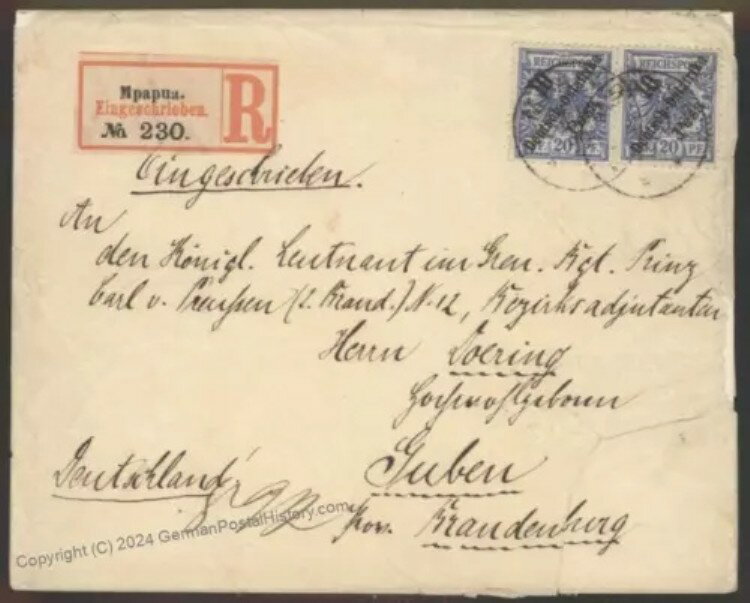 Mpapua.
Eingeschrieben.
№ 230.
R
REICHSPOST
10
Deutsch-Ostafrika
Pesa
20 PF.
REICHSPOST
10
Deutsch-Ostafrika
Pesa
20 PF.
Eingeschrieben.
An
den Königl. Leutnant im Gren. Rgt. Prinz
Carl v. Preußen (2. Brand.) № 12, Bezirksadjutanten
Herrn Doering
Hochwohlgeboren
Deutschland
Guben
Prov. Brandenburg
Copyright (C) 2024 GermanPostalHistory.com